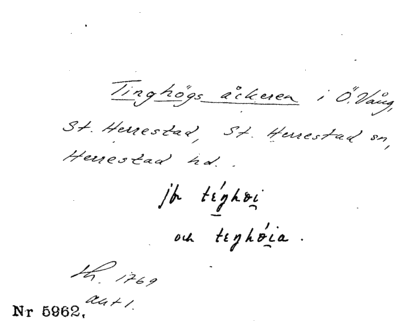 Tinghögs åckeren i Ö. Vång,
St. Herrestad, St. Herrestad sn,
Herrestad hd.
jfr téŋhɵi
och teŋhɵ́ia.
Sk. 1769
akt 1.
Nr 5962.